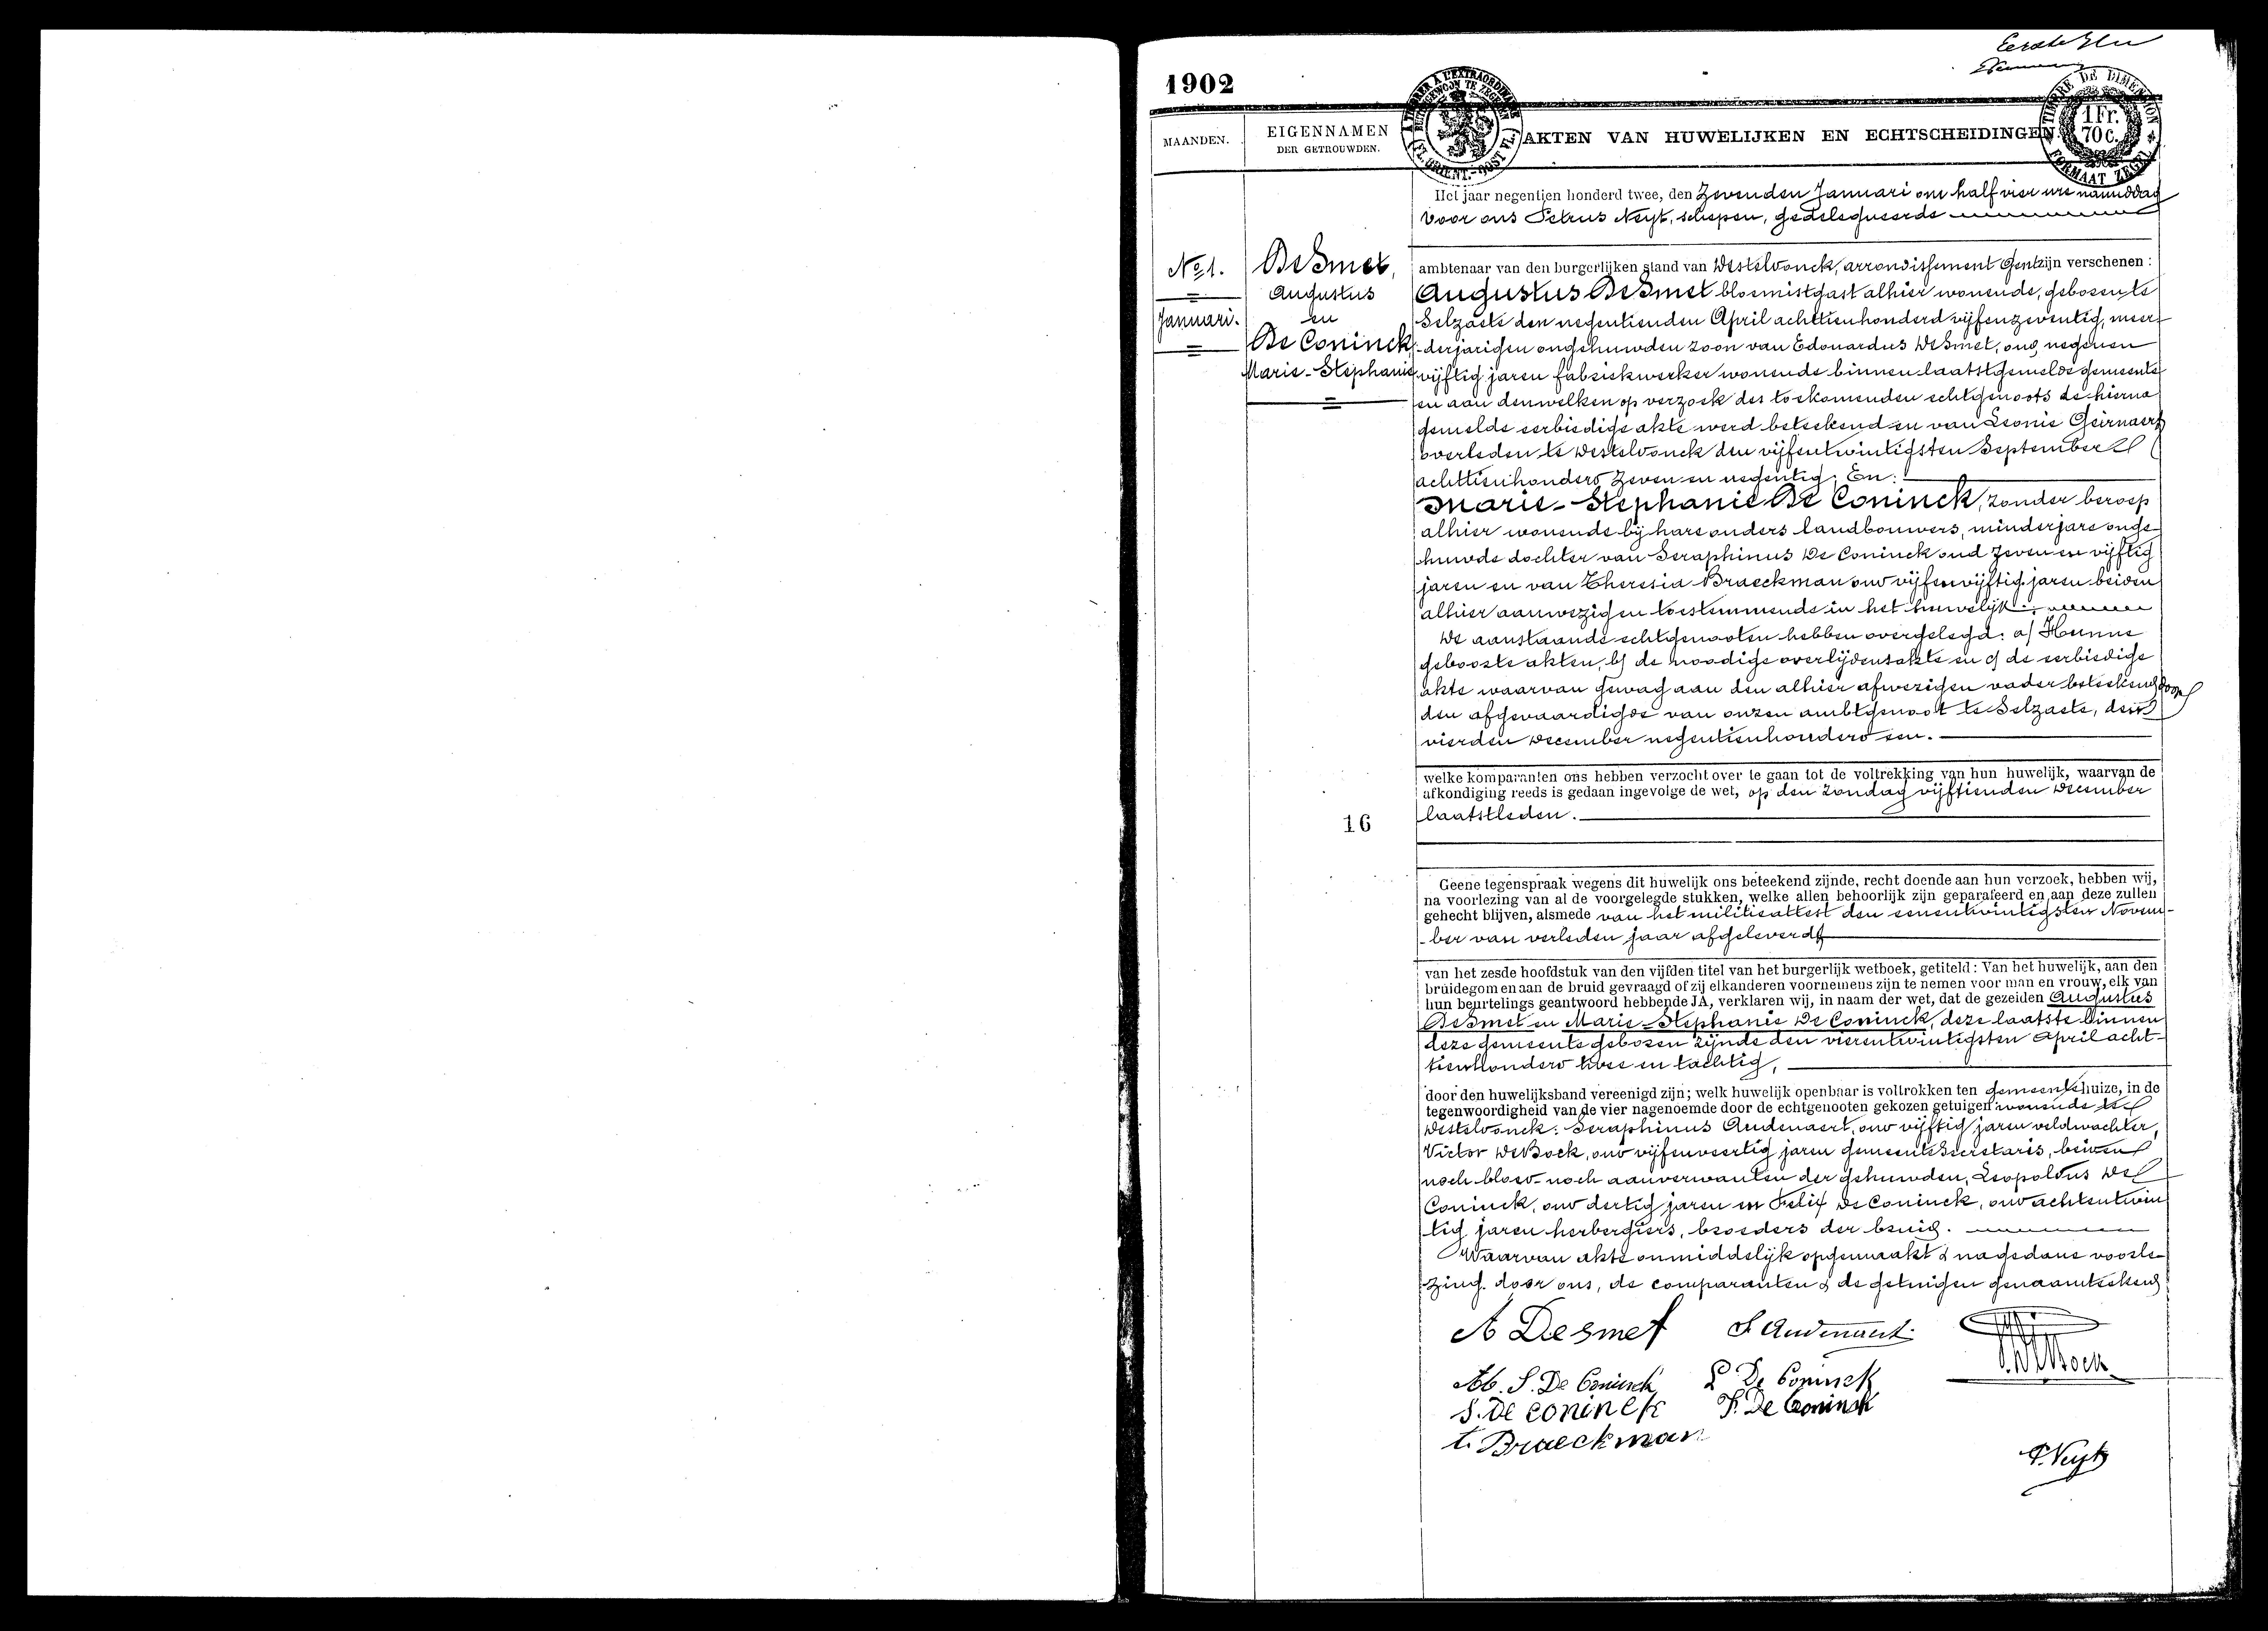 Eerste
1902
A TIMBRER A L'EXTRAORDINAIRE
BUITENGEWOON TE ZEGELEN
(FL. ORIENT.-OOST VL.)
TIMBRE DE DIMENSION
1 Fr.
70 c.
FORMAAT ZEGEL
MAANDEN.
EIGENNAMEN
DER GETROUWDEN.
AKTEN VAN HUWELIJKEN EN ECHTSCHEIDINGEN
No 1.
Januari.
De Smet,
Augustus
en
De Coninck,
Marie-Stephanie
16
Het jaar negentien honderd twee, den Zevenden Januari om half vier ure namiddag
voor ons Petrus Neyt, schepen, gedelegueerde
ambtenaar van den burgerlijken stand van Desteldonck, arrondissement Gent zijn verschenen :
Augustus DeSmet bloemistgast alhier wonende, geboren te
Selzaete den negentienden April achttienhonderd vijfenzeventig, meer-
-derjarigen ongehuwden zoon van Edouardus DeSmet, oud negenen
vijftig jaren fabriekwerker wonende binnen laatstgemelde gemeente
en aan denwelken op verzoek des toekomenden echtgenoots de hierna
gemelde eerbiedige akte werd beteekend en van Leonie Geirnaert
overleden te Desteldonck den vijfentwintigsten September
achttienhonderd zeven en negentig; En:
Marie-Stephanie De Coninck, zonder beroep
alhier wonende bij hare ouders landbouwers, minderjare onge-
huwde dochter van Seraphinus De Coninck oud zeven en vijftig
jaren en van Theresia Braeckman oud vijfenvijftig jaren beiden
alhier aanwezig en toestemmende in het huwelijk.
De aanstaande echtgenooten hebben overgelegd: a/ Hunne
geboorte akten, b/ de noodige overlijdensakte en c/ de eerbiedige
akte waarvan gewag aan den alhier afwezigen vader beteekend door
den afgevaardigde van onzen ambtgenoot te Selzaete, den
vierden December negentienhonderd een.
welke komparanten ons hebben verzocht over te gaan tot de voltrekking van hun huwelijk, waarvan de
afkondiging reeds is gedaan ingevolge de wet, op den Zondag vijftienden December
laatstleden.
Geene tegenspraak wegens dit huwelijk ons beteekend zijnde, recht doende aan hun verzoek, hebben wij,
na voorlezing van al de voorgelegde stukken, welke allen behoorlijk zijn geparafeerd en aan deze zullen
gehecht blijven, alsmede van het militieattest den eenentwintigsten Novem-
-ber van verleden jaar afgeleverd
van het zesde hoofdstuk van den vijfden titel van het burgerlijk wetboek, getiteld : Van het huwelijk, aan den
bruidegom en aan de bruid gevraagd of zij elkanderen voornemens zijn te nemen voor man en vrouw, elk van
hun beurtelings geantwoord hebbende JA, verklaren wij, in naam der wet, dat de gezeiden Augustus
DeSmet en Marie-Stephanie De Coninck, deze laatste binnen
deze gemeente geboren zijnde den vierentwintigsten April acht-
tienhonderd twee en tachtig,
door den huwelijksband vereenigd zijn; welk huwelijk openbaar is voltrokken ten gemeentehuize, in de
tegenwoordigheid van de vier nagenoemde door de echtgenooten gekozen getuigen wonende te
Desteldonck: Seraphinus Audenaert, oud vijftig jaren veldwachter,
Victor DeBock, oud vijfenveertig jaren gemeentesecretaris, beiden
noch bloed- noch aanverwanten der gehuwden, Leopoldus De
Coninck, oud dertig jaren en Felix De Coninck, oud achtentwin
tig jaren herbergiers, broeders der bruid.
Waarvan akte onmiddelijk opgemaakt & nagedane voorle-
zing door ons, de comparanten & de getuigen genaamteekend
A Desmet S. Audenaert
V. DeBock
M. S. De Coninck L De Coninck
S. De Coninck F. De Coninck
t. Braeckman
P. Neyt